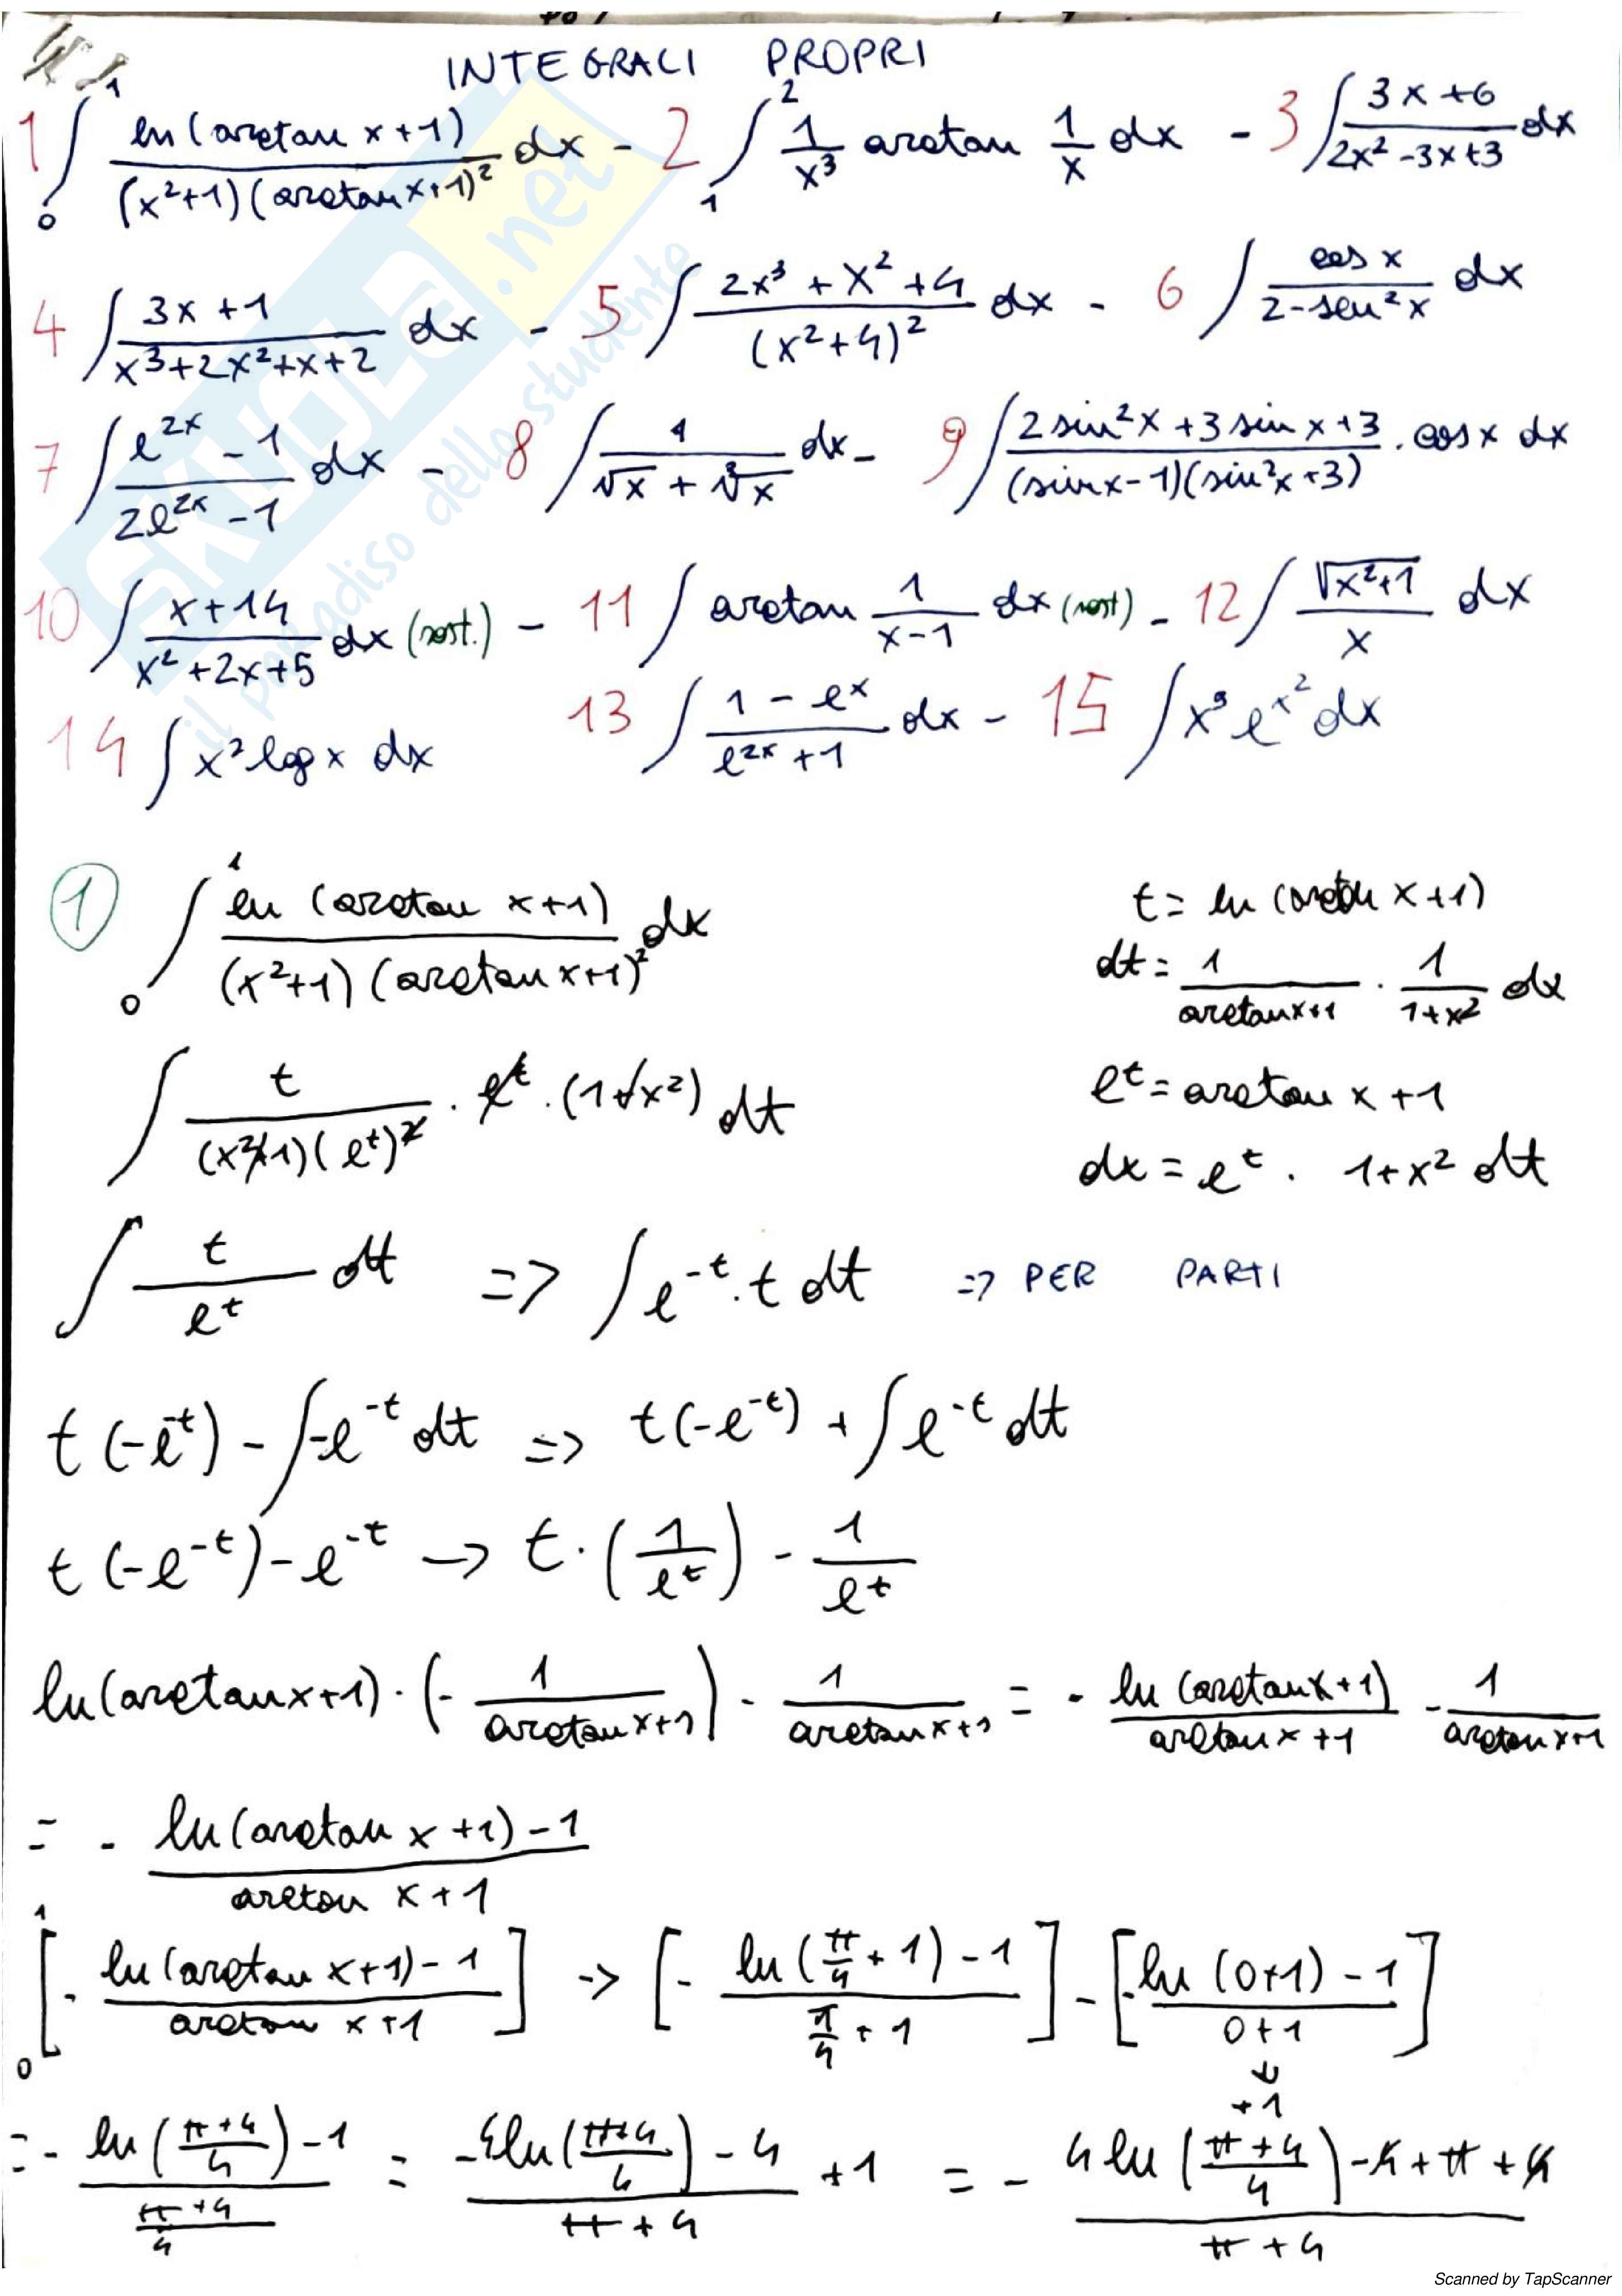 INTEGRALI PROPRI
1 ∫₀¹ ln(arctan x+1) / (x²+1)(arctan x+1)² dx - 2 ∫₁² 1/x³ arctan 1/x dx - 3 ∫ 3x+6 / 2x²-3x+3 dx
4 ∫ 3x+1 / x³+2x²+x+2 dx - 5 ∫ 2x³+x²+4 / (x²+4)² dx - 6 ∫ cos x / 2-sen²x dx
7 ∫ e^2x -1 / 2e^2x -1 dx - 8 ∫ 1 / √x + ∛x dx - 9 ∫ 2sin²x+3sinx+3 / (sinx-1)(sin²x+3) · cosx dx
10 ∫ x+14 / x²+2x+5 dx (sost.) - 11 ∫ arctan 1/x-1 dx (sost) - 12 ∫ √x²+1 / x dx
14 ∫ x² log x dx 13 ∫ 1-e^x / e^2x +1 dx - 15 ∫ x³ e^x² dx
SKUOLA.net
il paradiso dello studente
1 ∫₀¹ ln(arctan x+1) / (x²+1)(arctan x+1)² dx
t = ln(arctan x+1)
dt = 1/arctanx+1 · 1/1+x² dx
∫ t / (x²+1)(e^t)² · e^t · (1+x²) dt
e^t = arctan x+1
dx = e^t · 1+x² dt
∫ t/e^t dt => ∫ e^-t · t dt => PER PARTI
t(-e^-t) - ∫-e^-t dt => t(-e^-t) + ∫e^-t dt
t(-e^-t) - e^-t → t·(1/e^t) - 1/e^t
ln(arctanx+1)·(- 1/arctanx+1) - 1/arctanx+1 = - ln(arctanx+1)/arctanx+1 - 1/arctanx+1
= - ln(arctan x+1)-1 / arctan x+1
₀¹[- ln(arctan x+1)-1 / arctan x+1] → [- ln(π/4+1)-1 / π/4+1] - [- ln(0+1)-1 / 0+1]
↓
+1
= - ln(π+4/4)-1 / π+4/4 = -4ln(π+4/4)-4 / π+4 +1 = - 4ln(π+4/4)-4+π+4 / π+4
Scanned by TapScanner